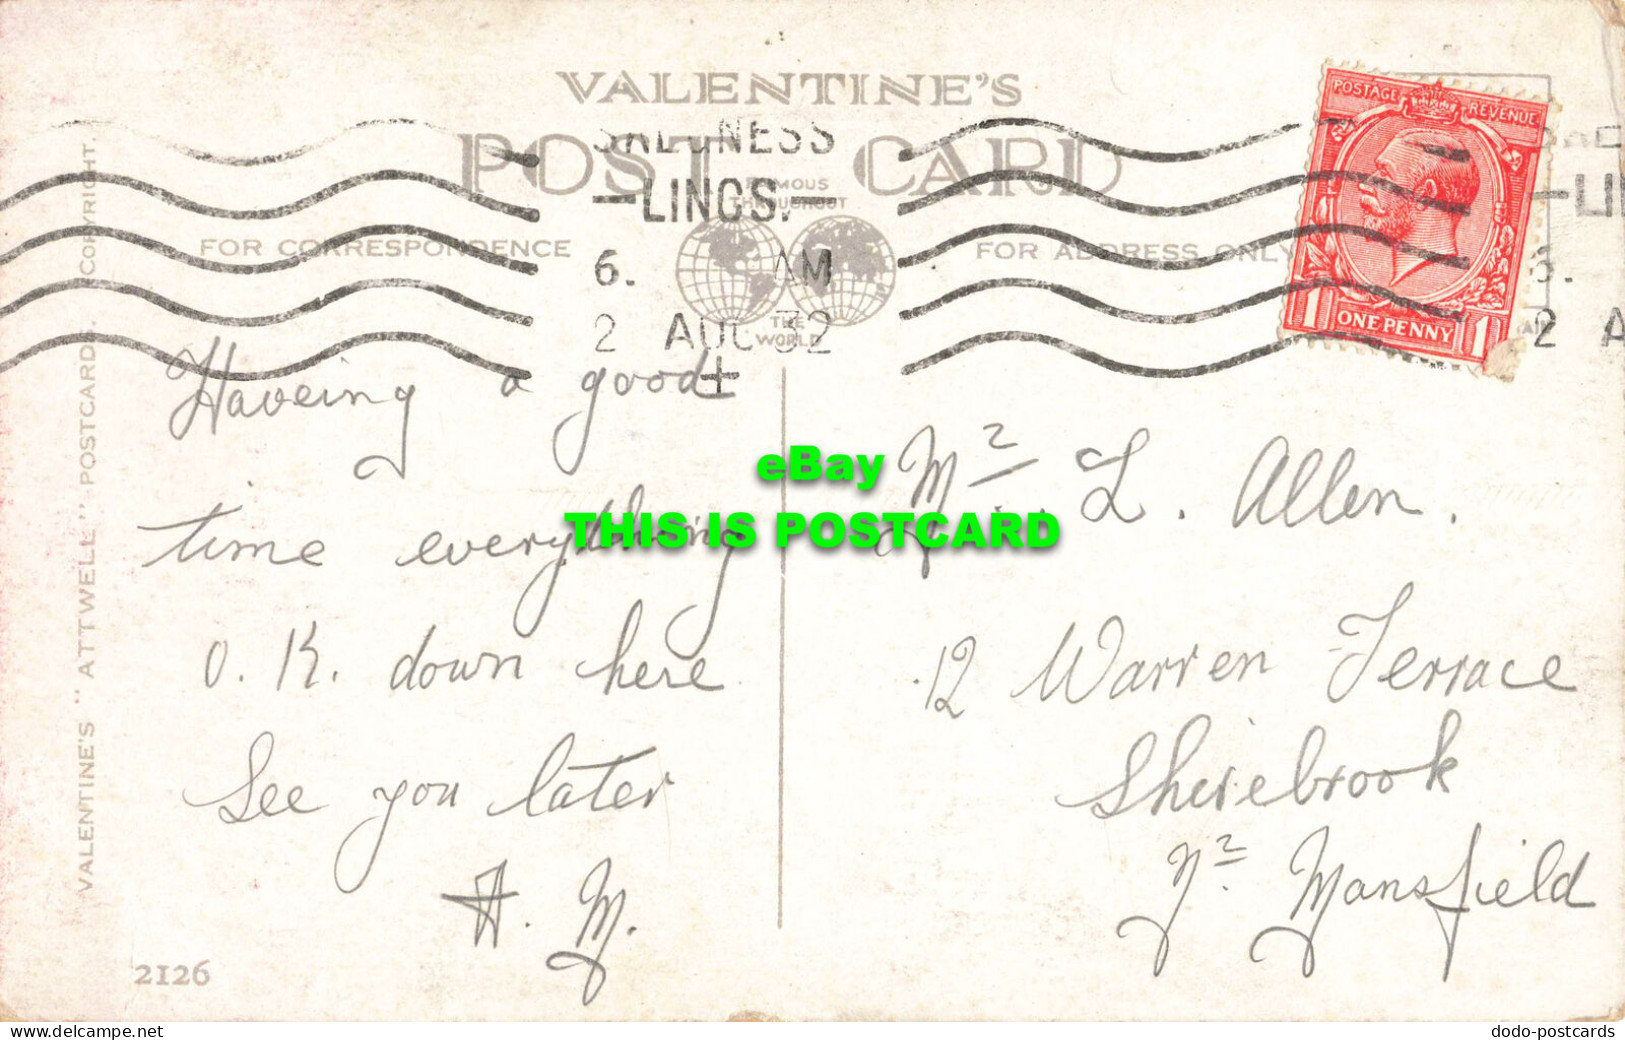 VALENTINE'S
POST CARD
FAMOUS THROUGHOUT
THE WORLD
FOR CORRESPONDENCE
FOR ADDRESS ONLY
SKEGNESS
-LINCS.-
6. AM
2 AUG 32
POSTAGE REVENUE
1 ONE PENNY 1
-LI
2 A
Haveing a good
time everything
O.K. down here
See you later
A. M.
Mr L. Allen.
12 Warren Terrace
Shirebrook
Nr Mansfield
eBay
THIS IS POSTCARD
VALENTINE'S "ATTWELL" POSTCARD. COPYRIGHT.
2126
www.delcampe.net
dodo-postcards